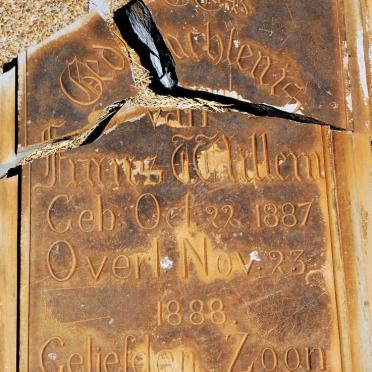 Gedachtenis
van
Frans Willem
Geb: Oct: 22 1887
Overl Nov: 23
1888.
Geliefden Zoon